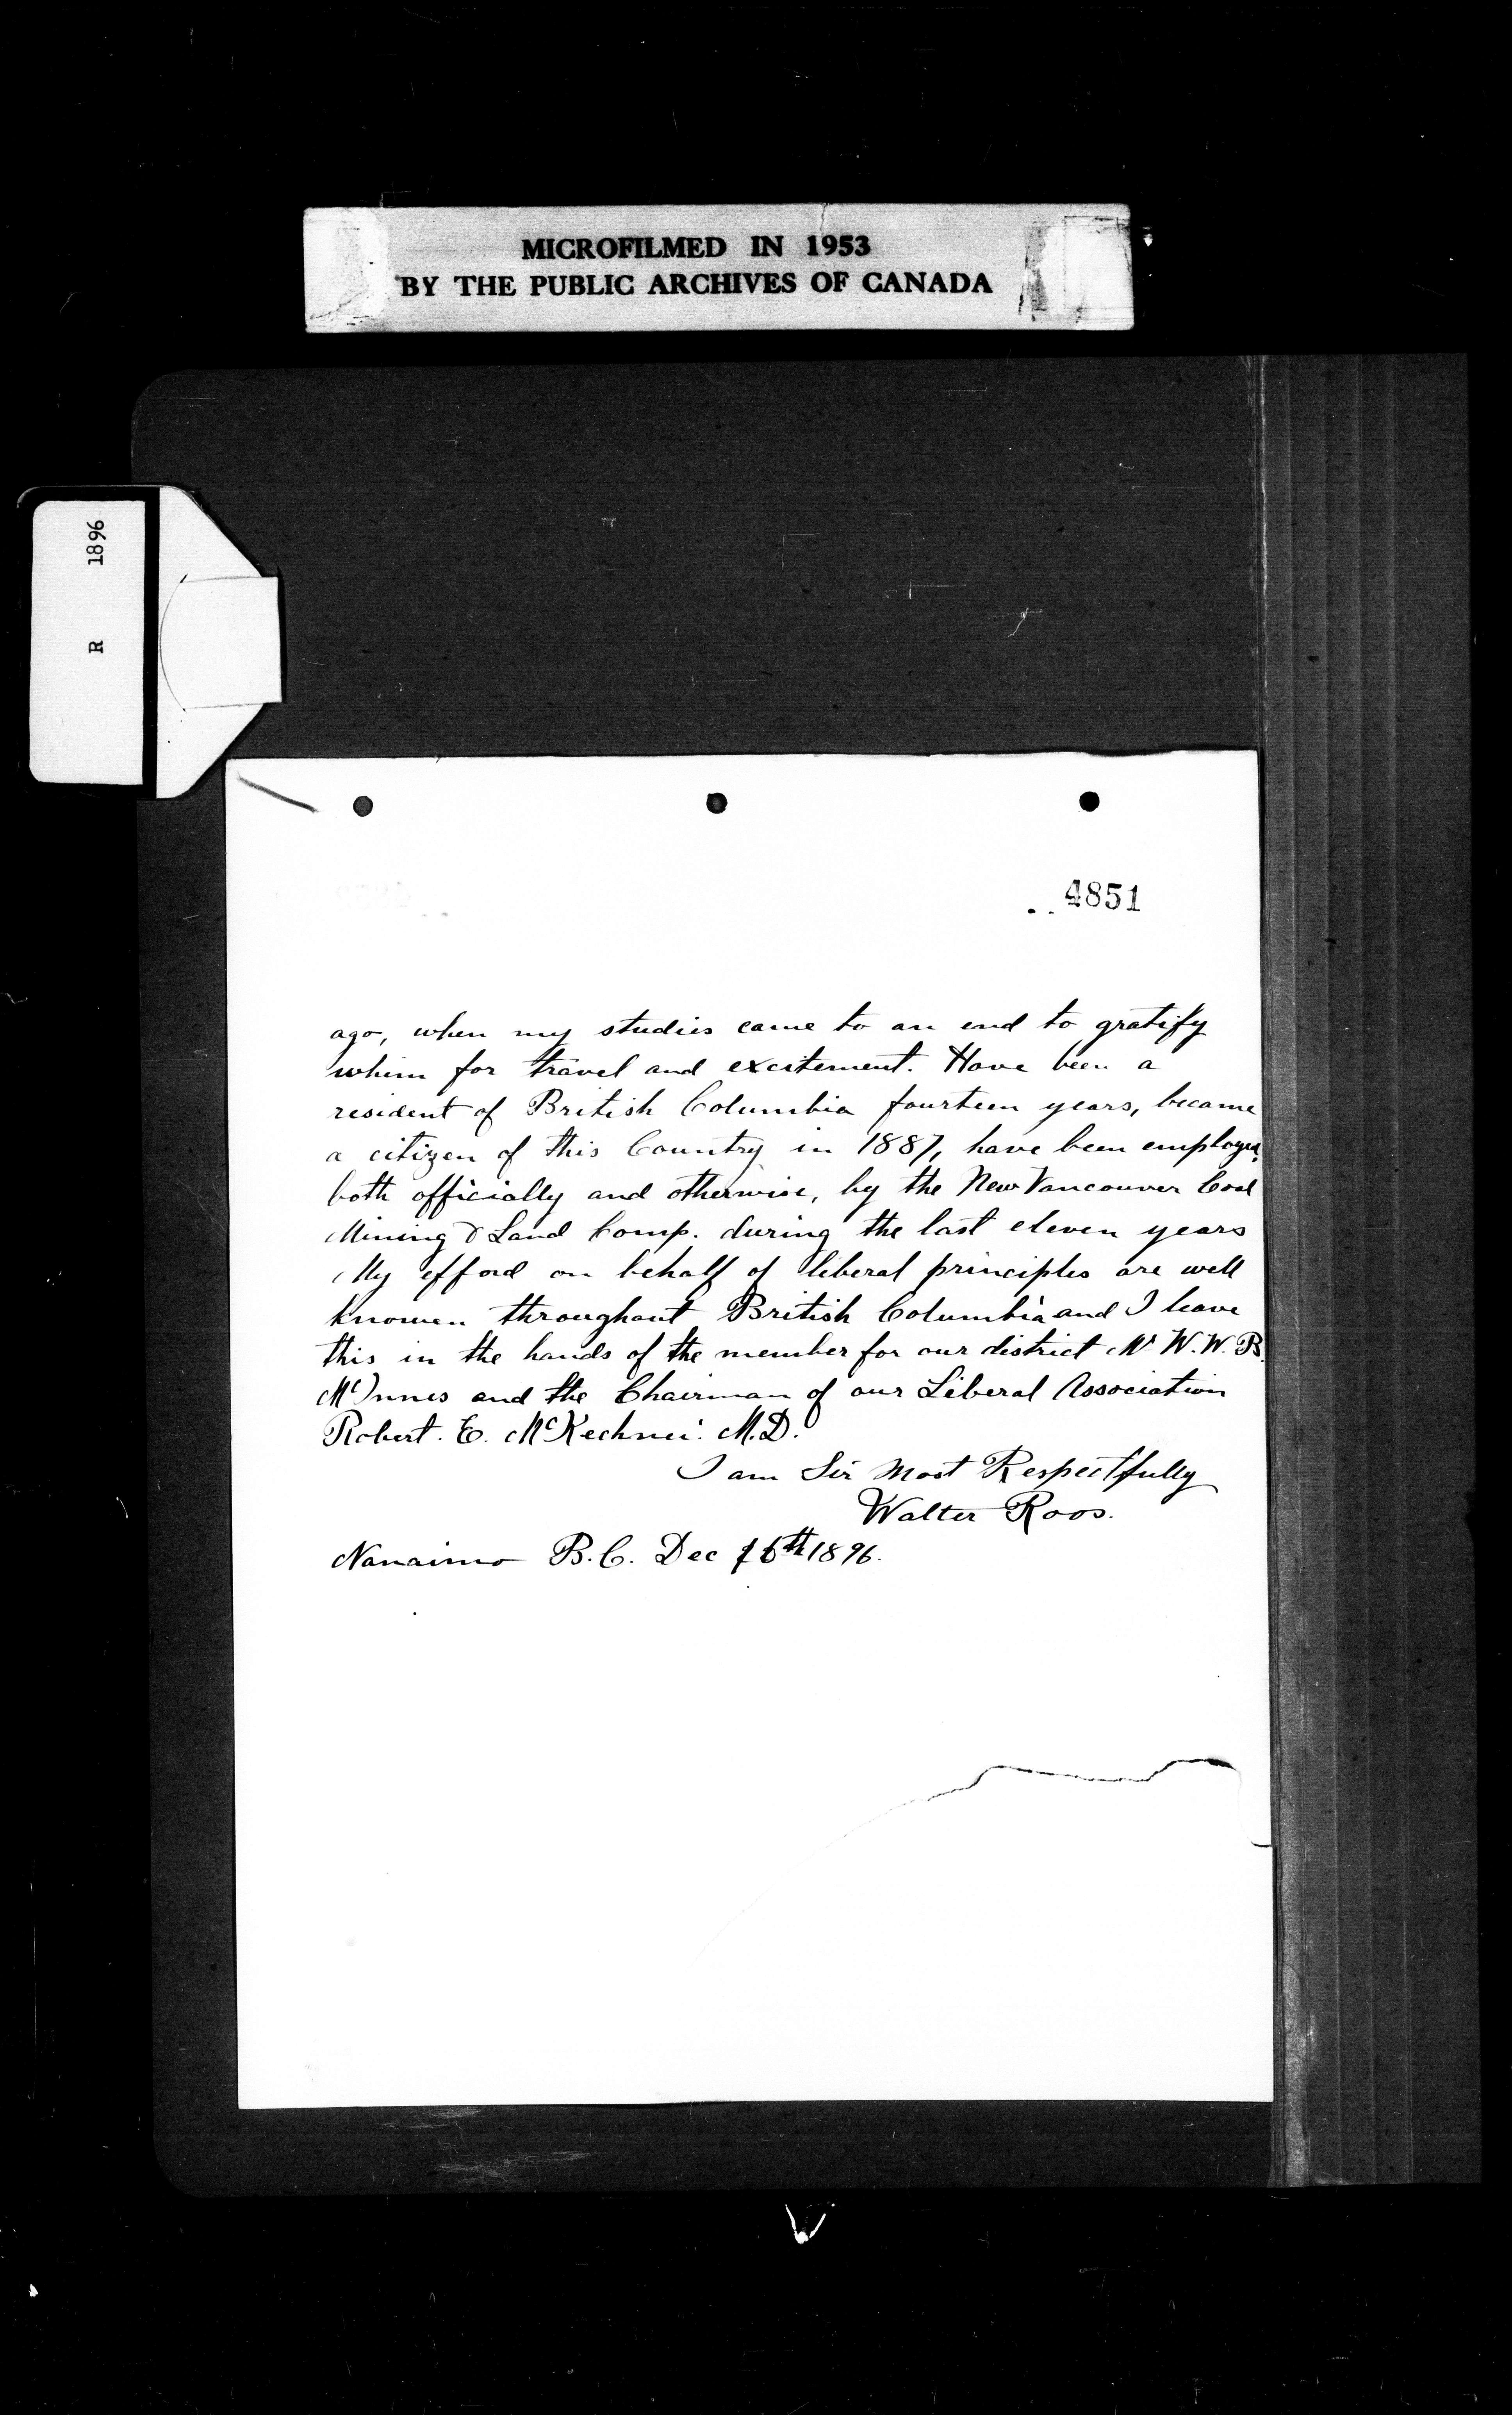 MICROFILMED IN 1953
BY THE PUBLIC ARCHIVES OF CANADA
R 1896
4851
ago, when my studies came to an end to gratify
whim for travel and excitement. Have been a
resident of British Columbia fourteen years, became
a citizen of this Country in 1887, have been employed
both officially and otherwise, by the New Vancouver Coal
Mining & Land Comp. during the last eleven years
My efford on behalf of liberal principles are well
knowen throughout British Columbia and I leave
this in the hands of the member for our district Mr W. W. B.
McInnes and the Chairman of our Liberal Association
Robert. E. McKechnei. M.D.
I am Sir Most Respectfully
Walter Roos.
Nanaimo B.C. Dec 16th 1896.